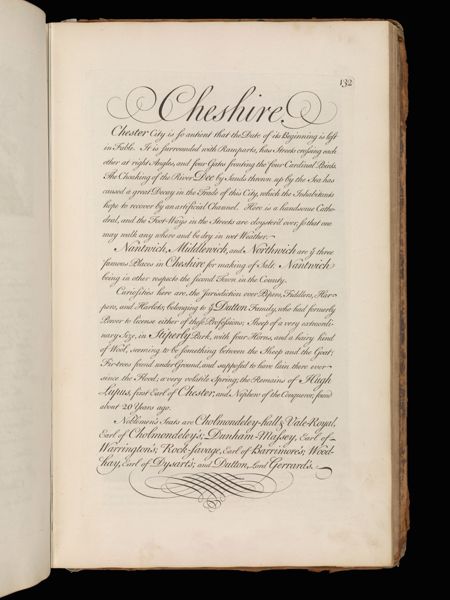 132
Cheshire.
Chester City is so antient that the Date of its Beginning is lost
in Fable. It is surrounded with Ramparts, has Streets crossing each
other at right Angles, and four Gates fronting the four Cardinal Points.
The Choaking of the River Dee by Sands thrown up by the Sea has
caused a great Decay in the Trade of this City, which the Inhabitants
hope to recover by an artificial Channel. Here is a handsome Cathe-
dral, and the Foot-Ways in the Streets are cloyster'd over, so that one
may walk any where and be dry in wet Weather.
Nantwich, Middlewich, and Northwich are ye three
famous Places in Cheshire for making of Salt. Nantwich
being in other respects the second Town in the County.
Curiosities here are, the Jurisdiction over Pipers, Fiddlers, Har-
pers, and Harlots; belonging to ye Dutton Family, who had formerly
Power to license either of those Professions; Sheep of a very extraordi-
nary Size, in Stiperly Park, with four Horns, and a hairy kind
of Wool, seeming to be something between the Sheep and the Goat;
Fir-trees found under Ground, and supposed to have lain there ever
since the Flood; a very volatile Spring; the Remains of Hugh
Lupus, first Earl of Chester, and Nephew of the Conqueror, found
about 20 Years ago.
Noblemen's Seats are Cholmondeley-hall & Vale-Royal,
Earl of Cholmondeley's; Dunham-Massey, Earl of
Warrington's; Rock-savage, Earl of Barrimore's; Wood-
hay, Earl of Dysart's; and Dutton, Lord Gerrard's.